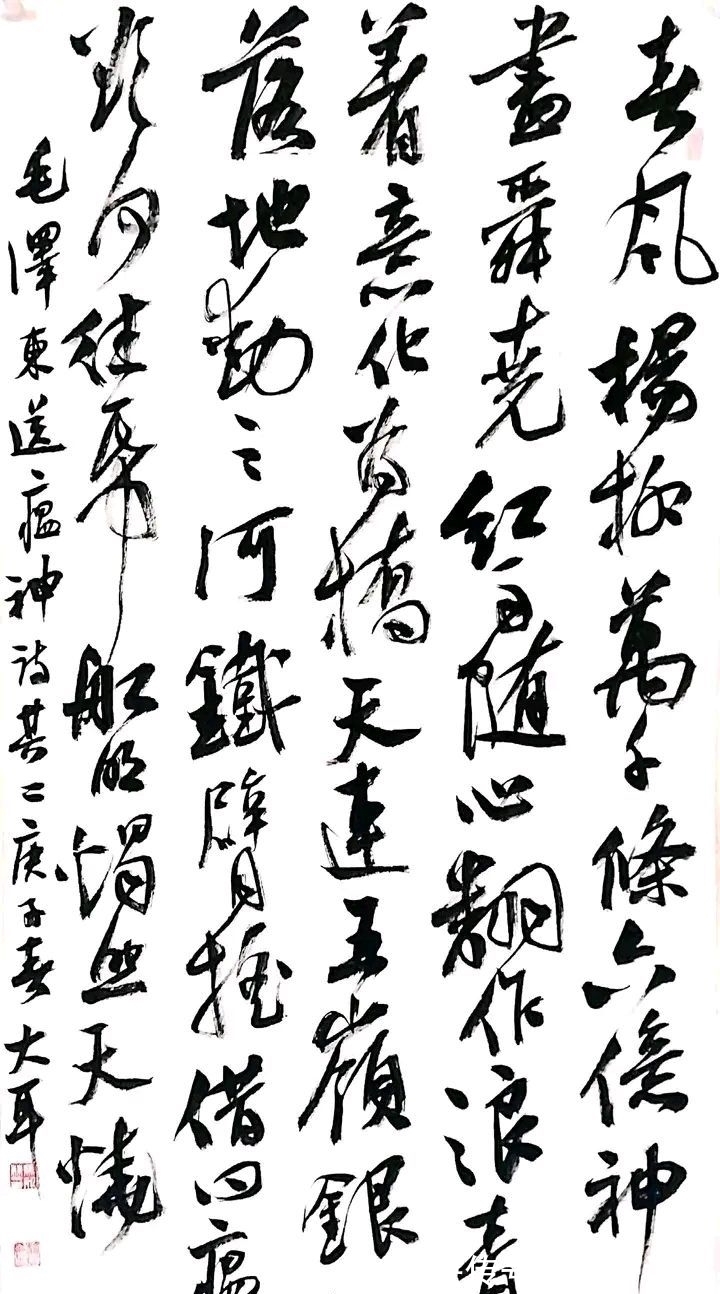 春風楊柳萬千條六億神
盡舜堯紅雨随心翻作浪青
着意化為橋天連五嶺銀
落地動三河鐵臂搖借問瘟
欲何往紙船明燭照天燒
毛澤東送瘟神诗其二庚子春大耳